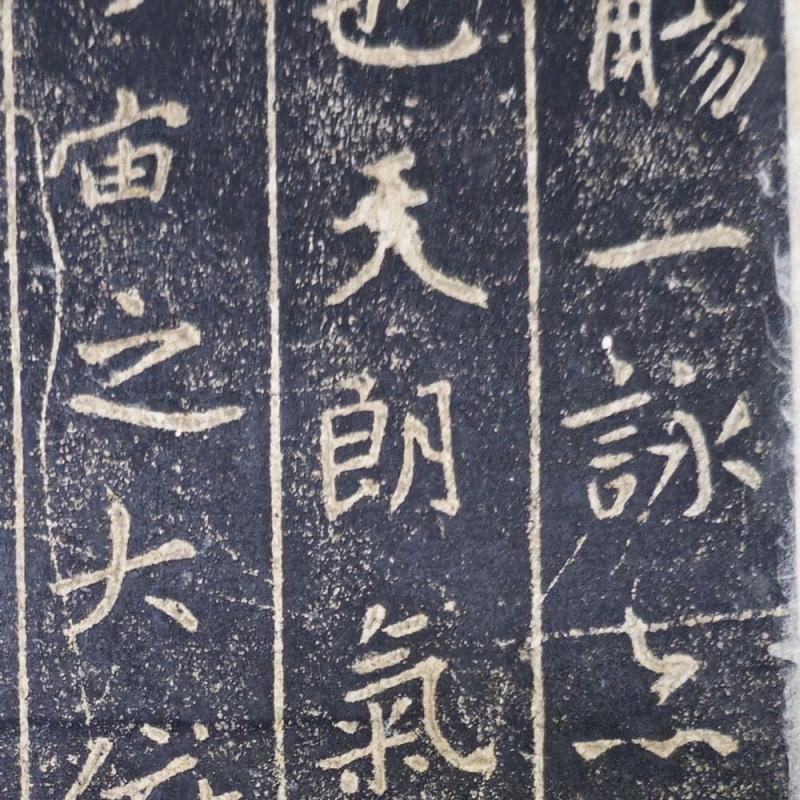 觴一詠亦
也天朗氣
宙之大